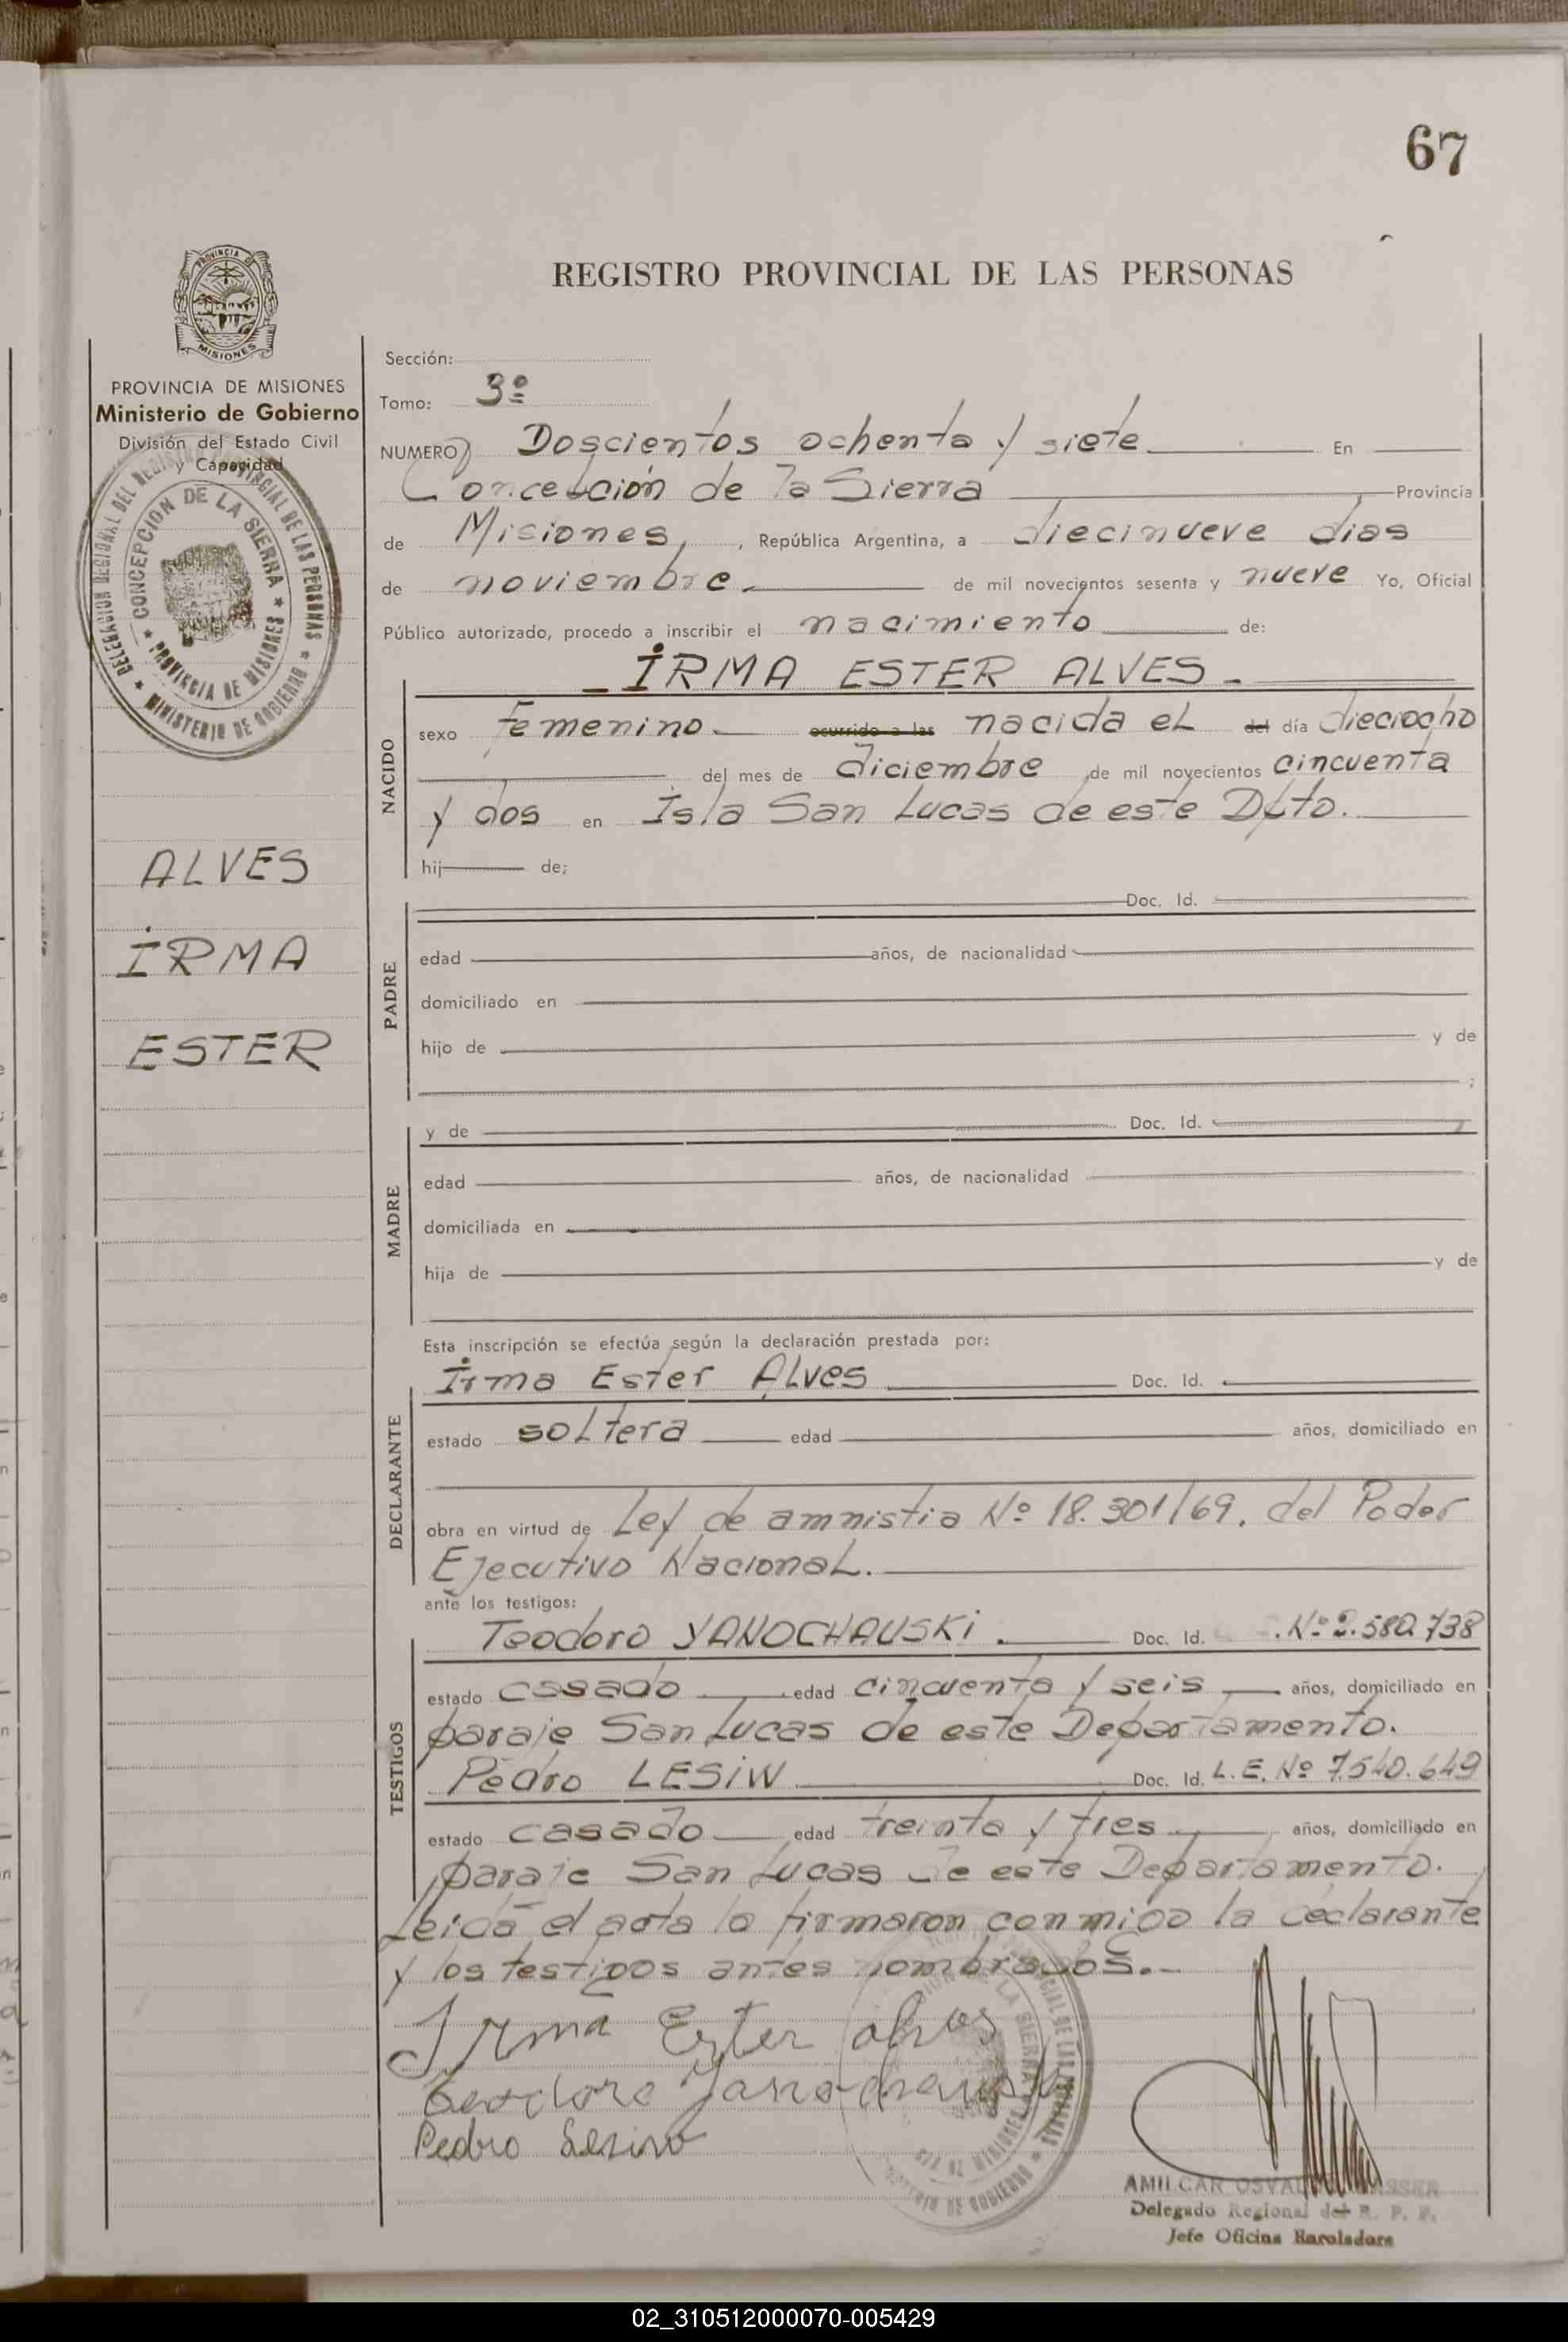 67
PROVINCIA DE
MISIONES
REGISTRO PROVINCIAL DE LAS PERSONAS
PROVINCIA DE MISIONES
Ministerio de Gobierno
División del Estado Civil
y Capacidad
DELEGACION REGIONAL DEL REGISTRO PROVINCIAL DE LAS PERSONAS
CONCEPCION DE LA SIERRA
PROVINCIA DE MISIONES
MINISTERIO DE GOBIERNO
ALVES
IRMA
ESTER
Sección:
Tomo: 3º
NUMERO Doscientos ochenta y siete En
Concepción de la Sierra Provincia
de Misiones, , República Argentina, a diecinueve dias
de noviembre. de mil novecientos sesenta y nueve Yo, Oficial
Público autorizado, procedo a inscribir el nacimiento de:
IRMA ESTER ALVES.-
NACIDO
sexo femenino.- ocurrido a las nacida el del día dieciocho
del mes de diciembre de mil novecientos cincuenta
y dos en Isla San Lucas de este Dpto.
hij de;
PADRE
Doc. Id.
edad años, de nacionalidad
domiciliado en
hijo de y de
;
MADRE
y de Doc. Id.
edad años, de nacionalidad
domiciliada en
hija de y de
Esta inscripción se efectúa según la declaración prestada por:
DECLARANTE
Irma Ester Alves Doc. Id.
estado soltera edad años, domiciliado en
obra en virtud de Ley de amnistia Nº 18.301/69. del Poder
Ejecutivo Nacional.
ante los testigos:
TESTIGOS
Teodoro YANOCHAUSKI. Doc. Id. Nº 2.580.738
estado casado edad cincuenta y seis años, domiciliado en
paraje San Lucas de este Departamento.
Pedro LESIW Doc. Id. L.E. Nº 7.540.649
estado casado edad treinta y tres años, domiciliado en
paraje San Lucas de este Departamento.
Leida el acta la firmaron conmigo la declarante
y los testigos antes nombrados.-
Irma Ester alves
Teodoro Yanochauski
Pedro Lesiw
AMILCAR
Delegado Regional del R. P. P.
Jefe Oficina
02_310512000070-005429